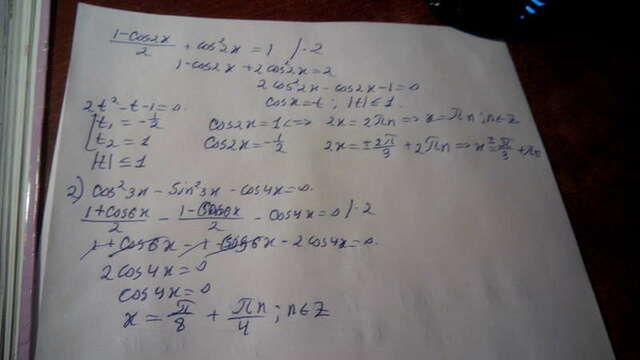 (1-cos2x)/2 + cos²2x = 1 /·2
1-cos2x+2cos²2x=2
2cos²2x-cos2x-1=0
cosx=t, |t|≤1.
2t²-t-1=0.
[t₁=-1/2 cos2x=1<=> 2x=2πn=>x=πn;n∈Z
t₂=1 cos2x=-1/2 2x=±2π/3+2πn=>x=±π/3+πn
|t|≤1
2) cos²3x-sin²3x-cos4x=0.
(1+cos6x)/2 - (1-cos6x)/2 - cos4x=0 /·2
1+cos6x-1-cos6x-2cos4x=0.
2cos4x=0
cos4x=0
x=π/8+πn/4;n∈Z